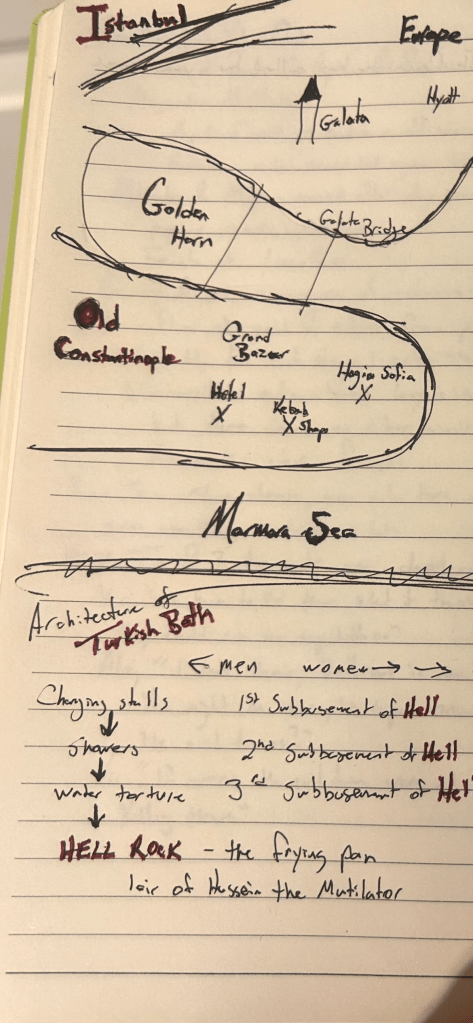 Istanbul
Europe
Hyatt
Galata
Golden
Horn
Galata Bridge
Old
Constantinople
Grand
Bazaar
Hagia Sofia
X
Hotel
X
Kebab
X Shop
Marmara Sea
Architecture of
Turkish Bath
← men women → →
Changing stalls 1st Subbasement of Hell
↓
showers 2nd Subbasement of Hell
↓
water torture 3rd Subbasement of Hell
↓
HELL ROCK - the frying pan
lair of Hussein the Mutilator